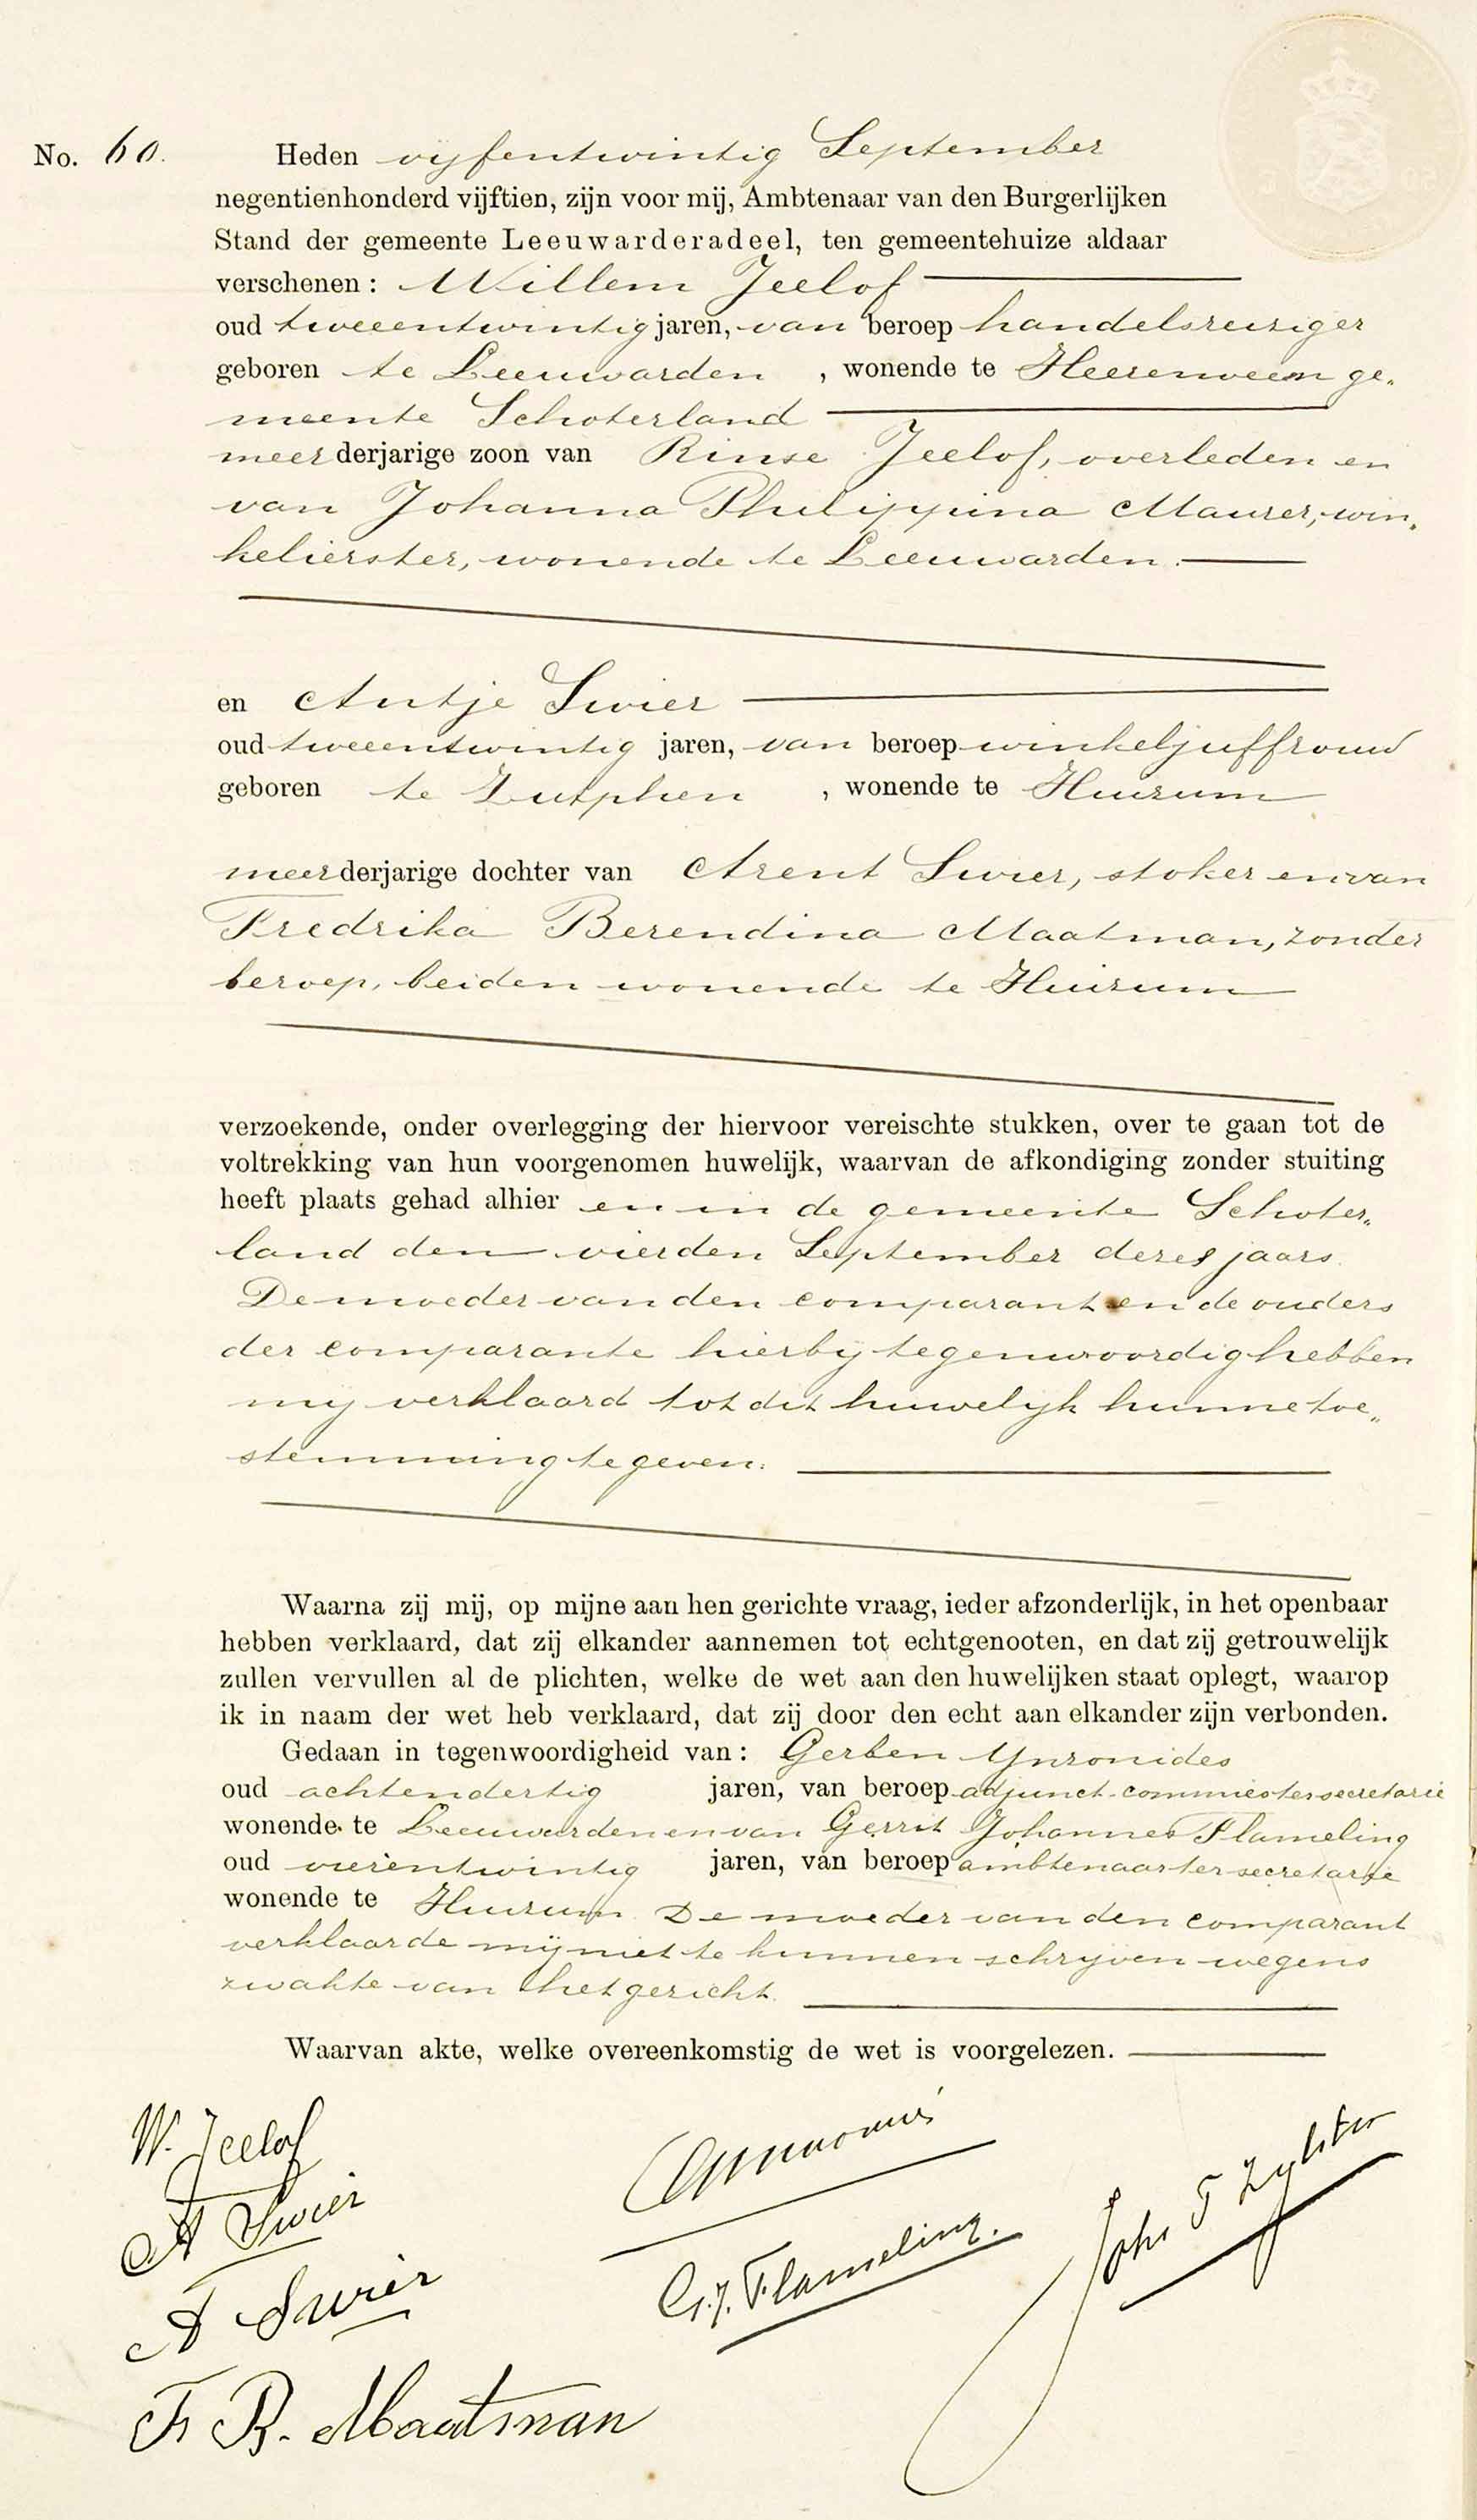 No. 60.
Heden vijfentwintig September
negentienhonderd vijftien, zijn voor mij, Ambtenaar van den Burgerlijken
Stand der gemeente Leeuwarderadeel, ten gemeentehuize aldaar
verschenen: Willem Jeelof
oud tweeentwintig jaren, van beroep handelsreiziger
geboren te Leeuwarden, wonende te Heerenveen ge„
meente Schoterland
meerderjarige zoon van Rinse Jeelof, overleden en
van Johanna Philippina Maurer, win„
kelierster, wonende te Leeuwarden.
en Antje Swier
oud tweeentwintig jaren, van beroep winkeljuffrouw
geboren te Zutphen, wonende te Huizum
meerderjarige dochter van Arent Swier, stoker en van
Fredrika Berendina Maatman, zonder
beroep, beiden wonende te Huizum
verzoekende, onder overlegging der hiervoor vereischte stukken, over te gaan tot de
voltrekking van hun voorgenomen huwelijk, waarvan de afkondiging zonder stuiting
heeft plaats gehad alhier en in de gemeente Schoter„
land den vierden September dezes jaars.
De moeder van den comparant en de ouders
der comparante hierbij tegenwoordig hebben
mij verklaard tot dit huwelijk hunne toe„
stemming te geven.
Waarna zij mij, op mijne aan hen gerichte vraag, ieder afzonderlijk, in het openbaar
hebben verklaard, dat zij elkander aannemen tot echtgenooten, en dat zij getrouwelijk
zullen vervullen al de plichten, welke de wet aan den huwelijken staat oplegt, waarop
ik in naam der wet heb verklaard, dat zij door den echt aan elkander zijn verbonden.
Gedaan in tegenwoordigheid van: Gerben Ynzonides
oud achtendertig jaren, van beroep adjunct-commies ter secretarie
wonende te Leeuwarden en van Gerrit Johannes Flameling
oud vierentwintig jaren, van beroep ambtenaar ter secretarie
wonende te Huizum. De moeder van den comparant
verklaarde mij niet te kunnen schrijven wegens
zwakte van het gezicht.
Waarvan akte, welke overeenkomstig de wet is voorgelezen.
W. Jeelof
A Swier
A Swier
F. B. Maatman
G. J. Flameling.